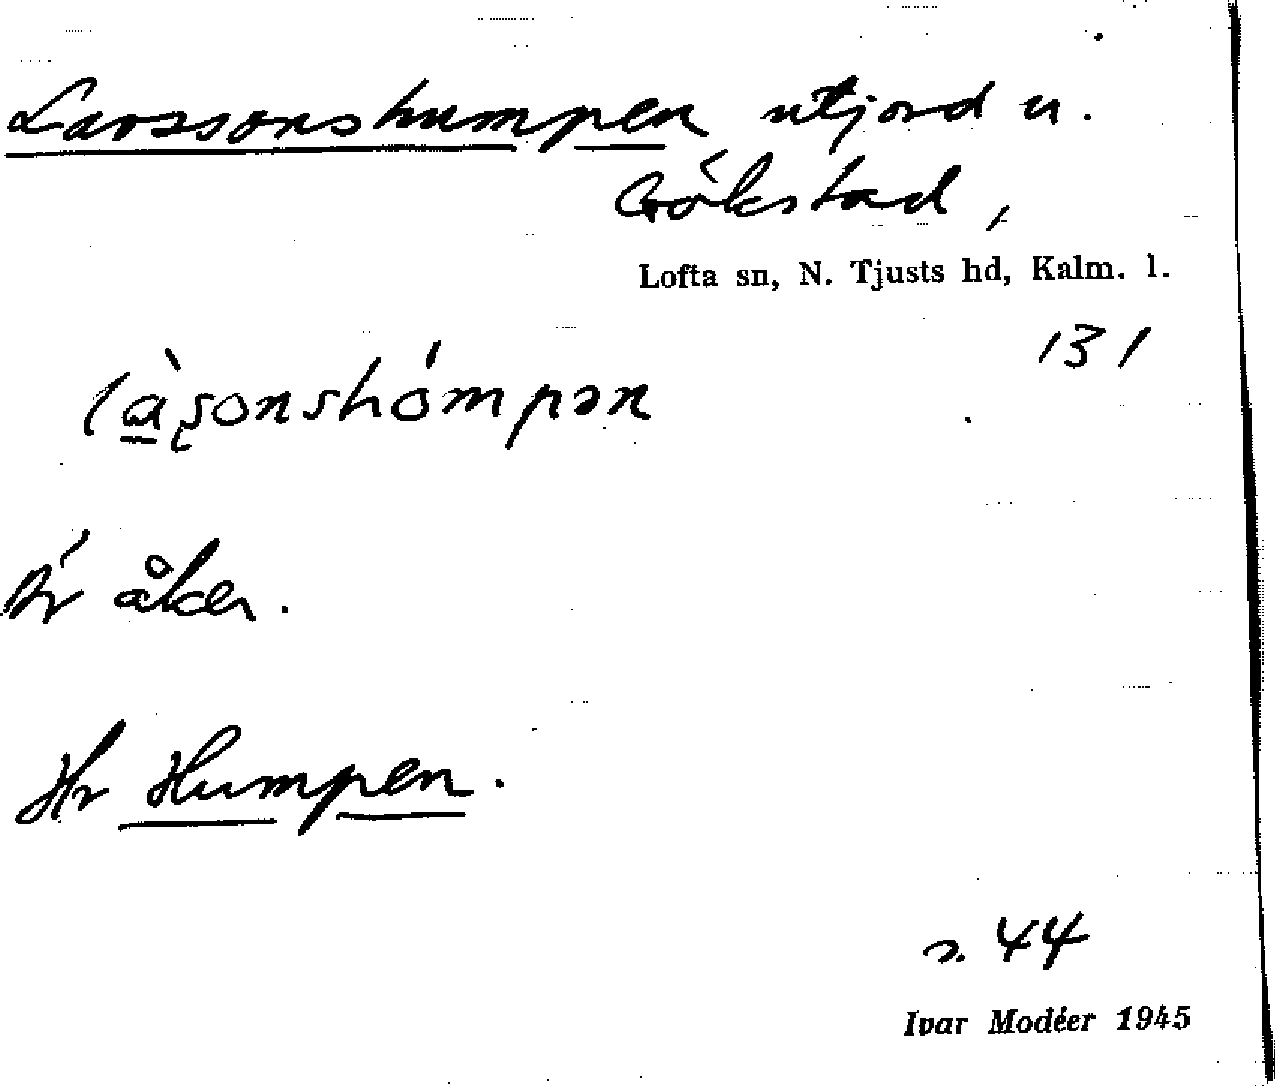 Larssonshumpen utjord u.
Gökstad,
Lofta sn, N. Tjusts hd, Kalm. l.
131
là̱ʂonshómpən
Är åker.
Hr Humpen.
s. 44
Ivar Modéer 1945